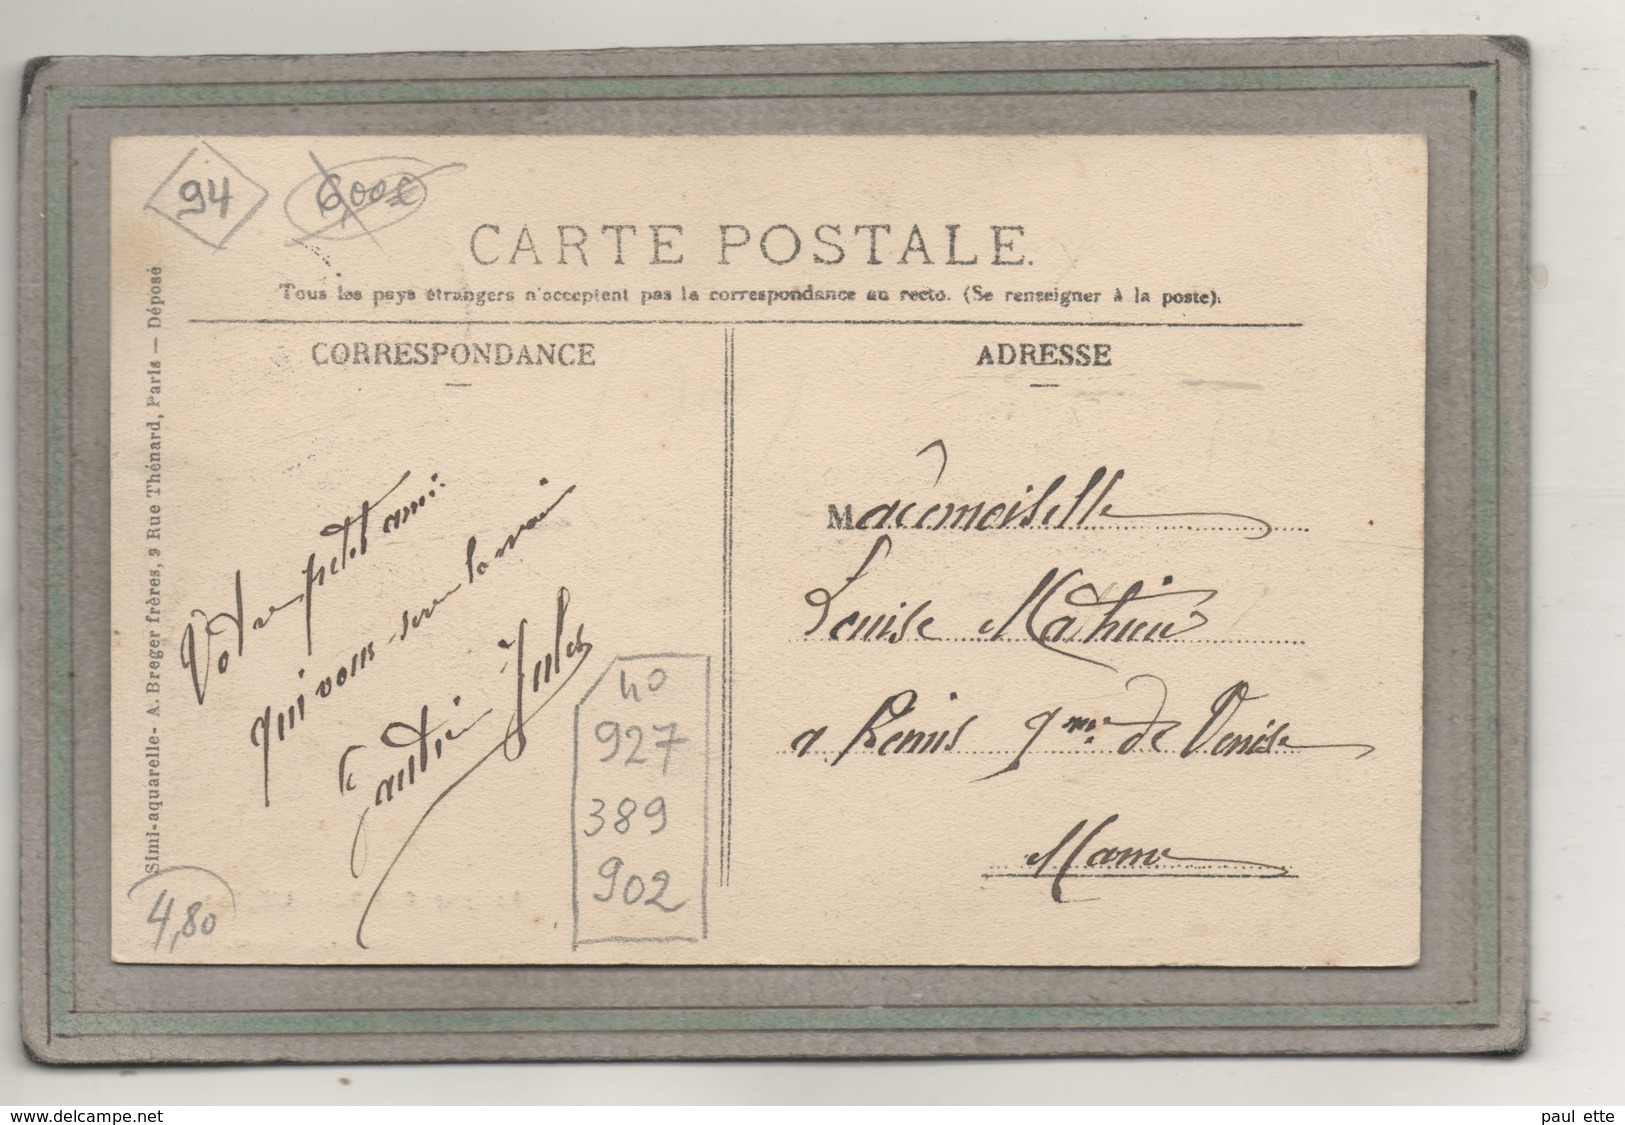 94
6,00€
CARTE POSTALE.
Tous les pays étrangers n'acceptent pas la correspondance au recto. (Se renseigner à la poste).
CORRESPONDANCE
ADRESSE
Simi-aquarelle - A. Breger frères, 9 Rue Thénard, Paris — Déposé
Votre petit ami
qui vous serre la main
Gautié Jules
Mademoiselle
Louise Mathieu
a Remis de Venise
Marne
40
927
389
902
4,80
www.delcampe.net
paul ette